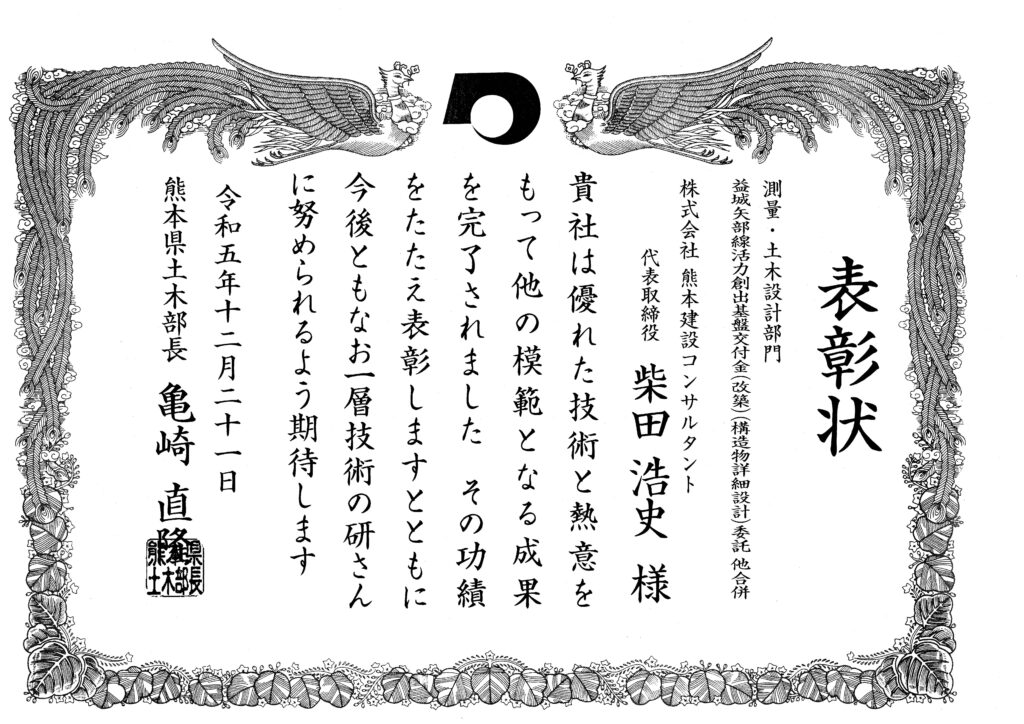 表彰状
測量・土木設計部門
益城矢部線活力創出基盤交付金(改築)(構造物詳細設計)委託 他合併
株式会社 熊本建設コンサルタント
代表取締役 柴田 浩史 様
貴社は優れた技術と熱意を
もって他の模範となる成果
を完了されました その功績
をたたえ表彰しますとともに
今後ともなお一層技術の研さん
に努められるよう期待します
令和五年十二月二十一日
熊本県土木部長 亀崎 直隆
熊本県土木部長